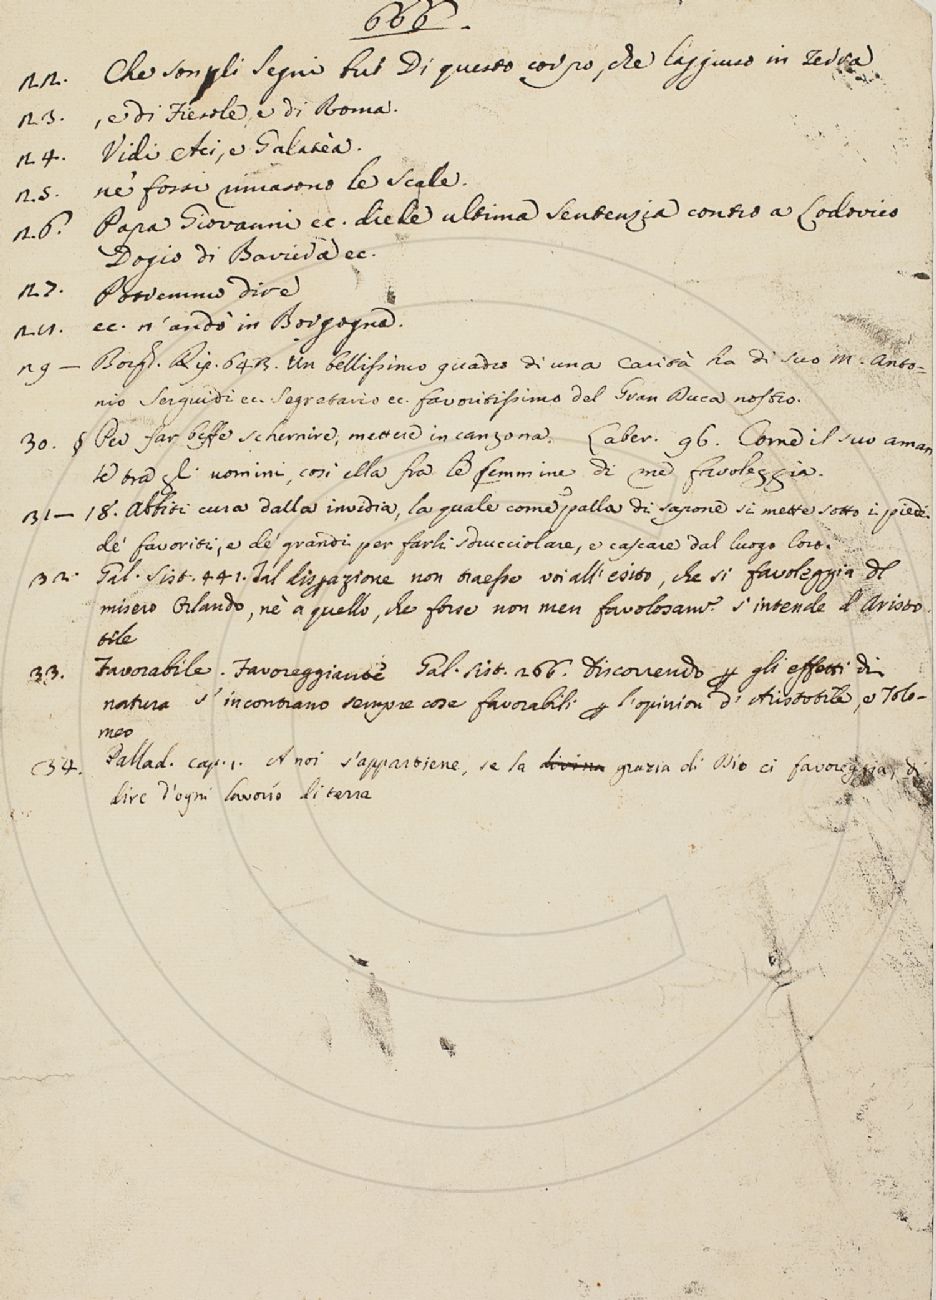 666.
22. Che son gli segni bui Di questo corpo, che laggiuso in Terra
23. , e di Fiesole, e di Roma.
24. Vidi Aci, e Galatèa.
25. nè fossi rimasono le scale.
26. Papa Giovanni ec. diede ultima sentenzia contro a Lodovico
Dogio di Baviera ec.
27. Porremmo dire
28. ec. n'andò in Borgogna.
29 — Borgh. Rip. 643. Un bellissimo quadro di una carità ha di suo M. Anto-
nio Serguidi ec. segretario ec. favoritissimo del Gran Duca nostro.
30. § Per far beffe schernire, mettere in canzona. Laber. 96. Come il suo aman
te tra gli uomini, così ella fra le femmine di me favoleggia.
31 — 18. Abbiti cura dalla invidia, la quale come palla di sapone si mette sotto i piedi
de' favoriti, e de' grandi per farli sdrucciolare, e cascare dal luogo loro.
32. Gal. Sist. 441. Tal disputazione non traesse voi all'esito, che si favoleggia del
misero Orlando, nè a quello, che forse non men favolosam.e s'intende d'Aristo
tile
33. Favorabile. Favoreggiante Gal. Sist. 266. Discorrendo p gli effetti di
natura s'incontrano sempre cose favorabili p l'opinion d'Aristotile, e Tolo-
meo
34. Pallad. cap. 1. A noi s'appartiene, se la divina grazia di Dio ci favoreggia, di
dire d'ogni lavorío di terra